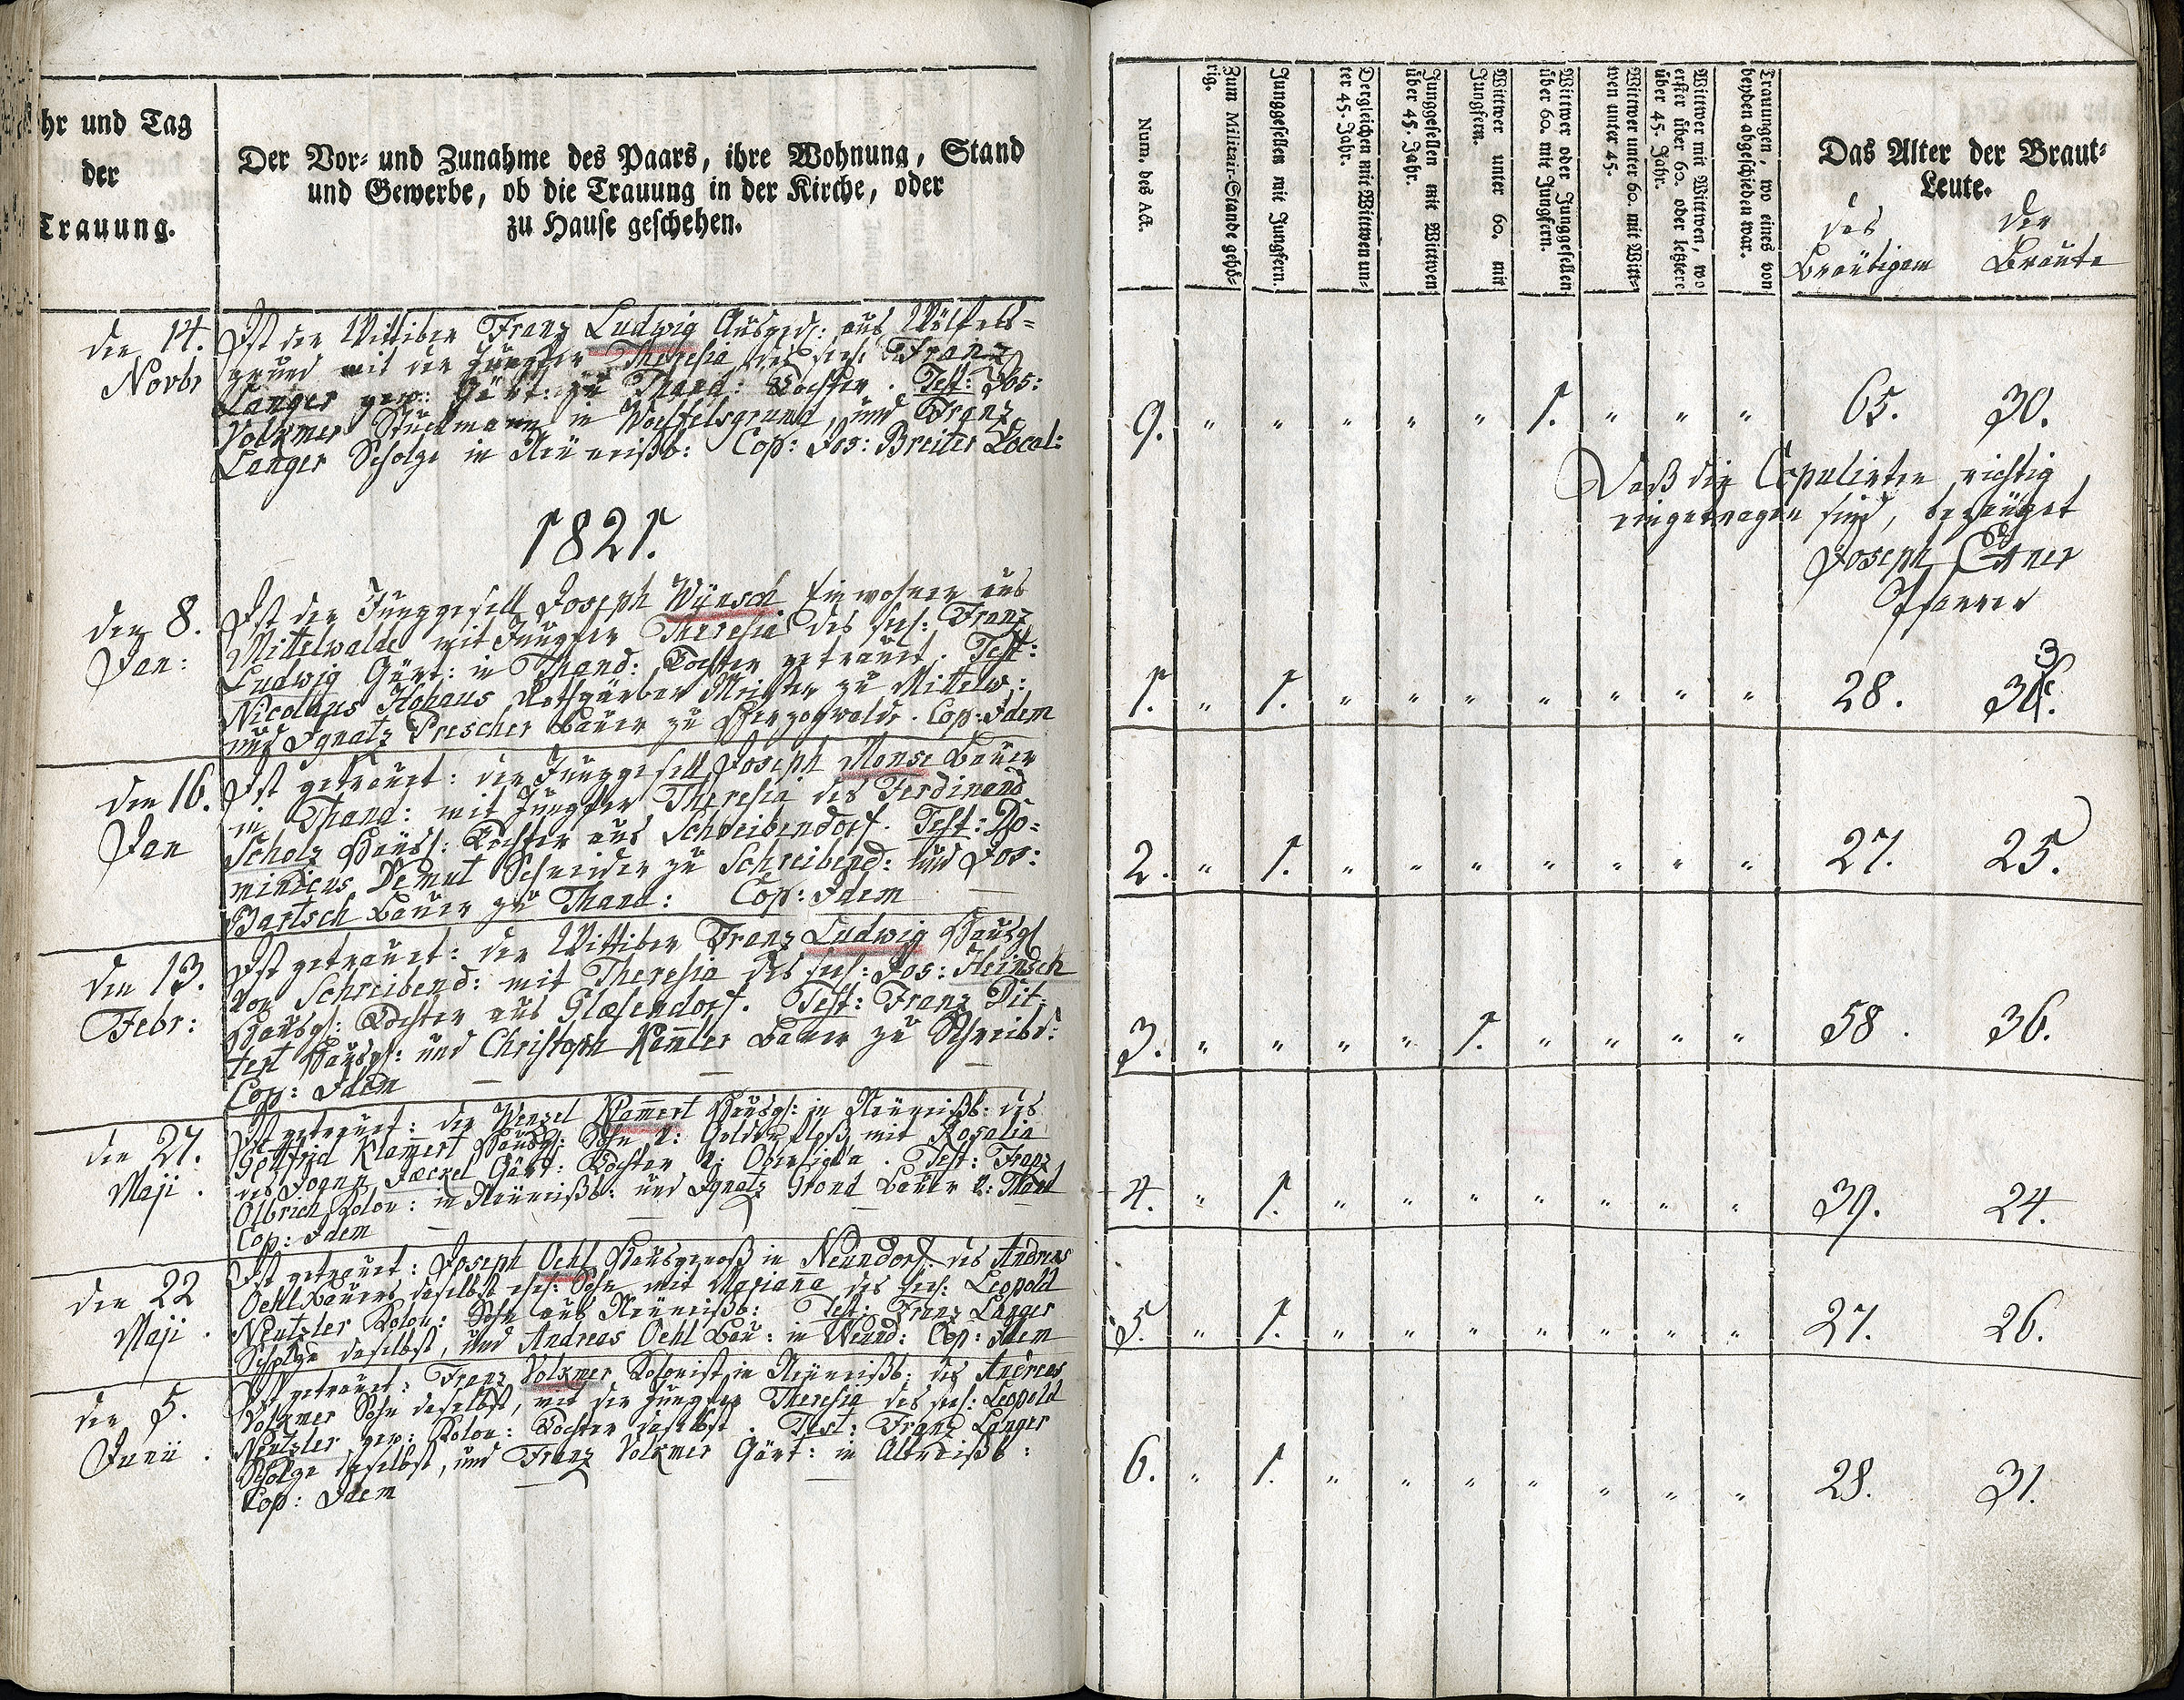 hr und Tag
der
Trauung.
Der Vor- und Zunahme des Paars, ihre Wohnung, Stand
und Gewerbe, ob die Trauung in der Kirche, oder
zu Hause geschehen.
den 14.
Novbr
Ist der Wittiber Franz Ludwig Ausged: aus Wölfels=
grund mit der Jungfer Theresia des seel: Franz
Langer gew: Gärt: zu Thand: Tochter. Test: Jos:
Volkmer Stuckmann in Woelfelsgrund, und Franz
Langer Scholze in Neüweißb: Cop: Jos: Breiter Local:
1821.
den 8.
Jan:
Ist der Junggesell Joseph Wünsch Einwohner aus
Mittelwalde mit Jungfer Theresia des seel: Franz
Ludwig Gärt: in Thand: Tochter getraut. Test:
Nicolaus Hohaus Rothgärber Meister zu Mittelw:
und Ignatz Prescher Bauer zu Herzogwalde. Cop: Idem
den 16.
Jan
Ist getrauet: der Junggesell Joseph Monse Bauer
in Thand: mit Jungfer Theresia des Ferdinand
Scholz Häusl: Tochter aus Schreibendorf. Test: Do=
minicus Demut Schneider zu Schreibend: und Jos:
Bartsch Bauer zu Thand: Cop: Idem
den 13.
Febr:
Ist getrauet: der Wittiber Franz Ludwig Hausgl
von Schreibend: mit Theresia des seel: Jos: Heinsch
Hausgl: Tochter aus Glasendorf. Test: Franz Dit=
tert Hausgl: und Christoph Kam̄ler Bauer zu Schreibd:
Cop: Idem
den 27.
Maji.
Ist getrauet: der Wenzel Klam̄ert Hausgl: in Neüweißb: des
Gottfrid Klam̄ert Hausgl: Sohn mit Rosalia
des Joann Jaeckel Gärt: Tochter Test: Franz
Olbrich Kolon: in Neüweißb: und Ignatz Grond Bauer Thand
Cop: Idem
den 22
Maji.
Ist getrauet: Joseph Oehl Hausgenoß in Neundorf: des Andreas
Oehl Bauers daselbst ehel: Sohn mit Marian̄a des seel: Leopold
Neutzler Kolon: Sohn aus Neüweißb: Test: Franz Langer
Scholze daselbst, und Andreas Oehl Bau: in Neund: Cop: Idem
den 5.
Junii.
Ist getrauet: Franz Volkmer Kolonist in Neüweißb: des Andreas
Volkmer Sohn daselbst, mit der Jungfer Theresia des seel: Leopold
Neutzler gew: Kolon: Tochter daselbst. Test: Franz Langer
Scholze daselbst, und Franz Volkmer Gärt: in Altweißb:
Cop: Idem
Num. des Act.
Zum Militair-Stande gehö-
rig.
Junggesellen mit Jungfern.
Dergleichen mit Wittwen un-
ter 45. Jahr.
Junggesellen mit Wittwen
über 45. Jahr.
Wittwer unter 60. mit
Jungfern.
Wittwer oder Junggesellen
über 60. mit Jungfern.
Wittwer unter 60. mit Witt-
wen unter 45.
Wittwer mit Wittwen, wo
erster über 60. oder letztere
über 45. Jahr.
Trauungen, wo eines von
beyden abgeschieden war.
Das Alter der Braut-
Leute.
des Bräutigam
der Braute
9. " " " " " 1. " " " 65. 30.
Daß die Copulirten richtig
eingetragen sind, bezeüget
Joseph Etner
Pfarrer
1. " 1. " " " " " " " 28. 3
2. " 1. " " " " " " " 27. 25.
3. " " " " 1. " " " " 58. 36.
4. " 1. " " " " " " " 39. 24.
5. " 1. " " " " " " " 27. 26.
6. " 1. " " " " " " " 28. 31.